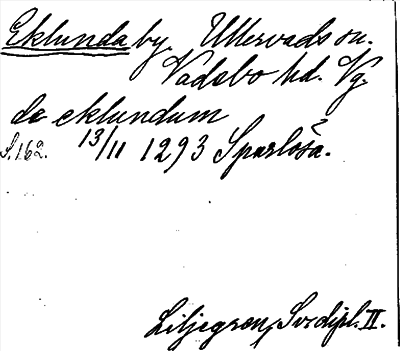 Eklunda by. Ullervads sn.
Vadsbo hd. Vg.
de eklundum
S. 162. 13/11 1293 Sparlösa.
Liljegren, Sv. dipl. II.